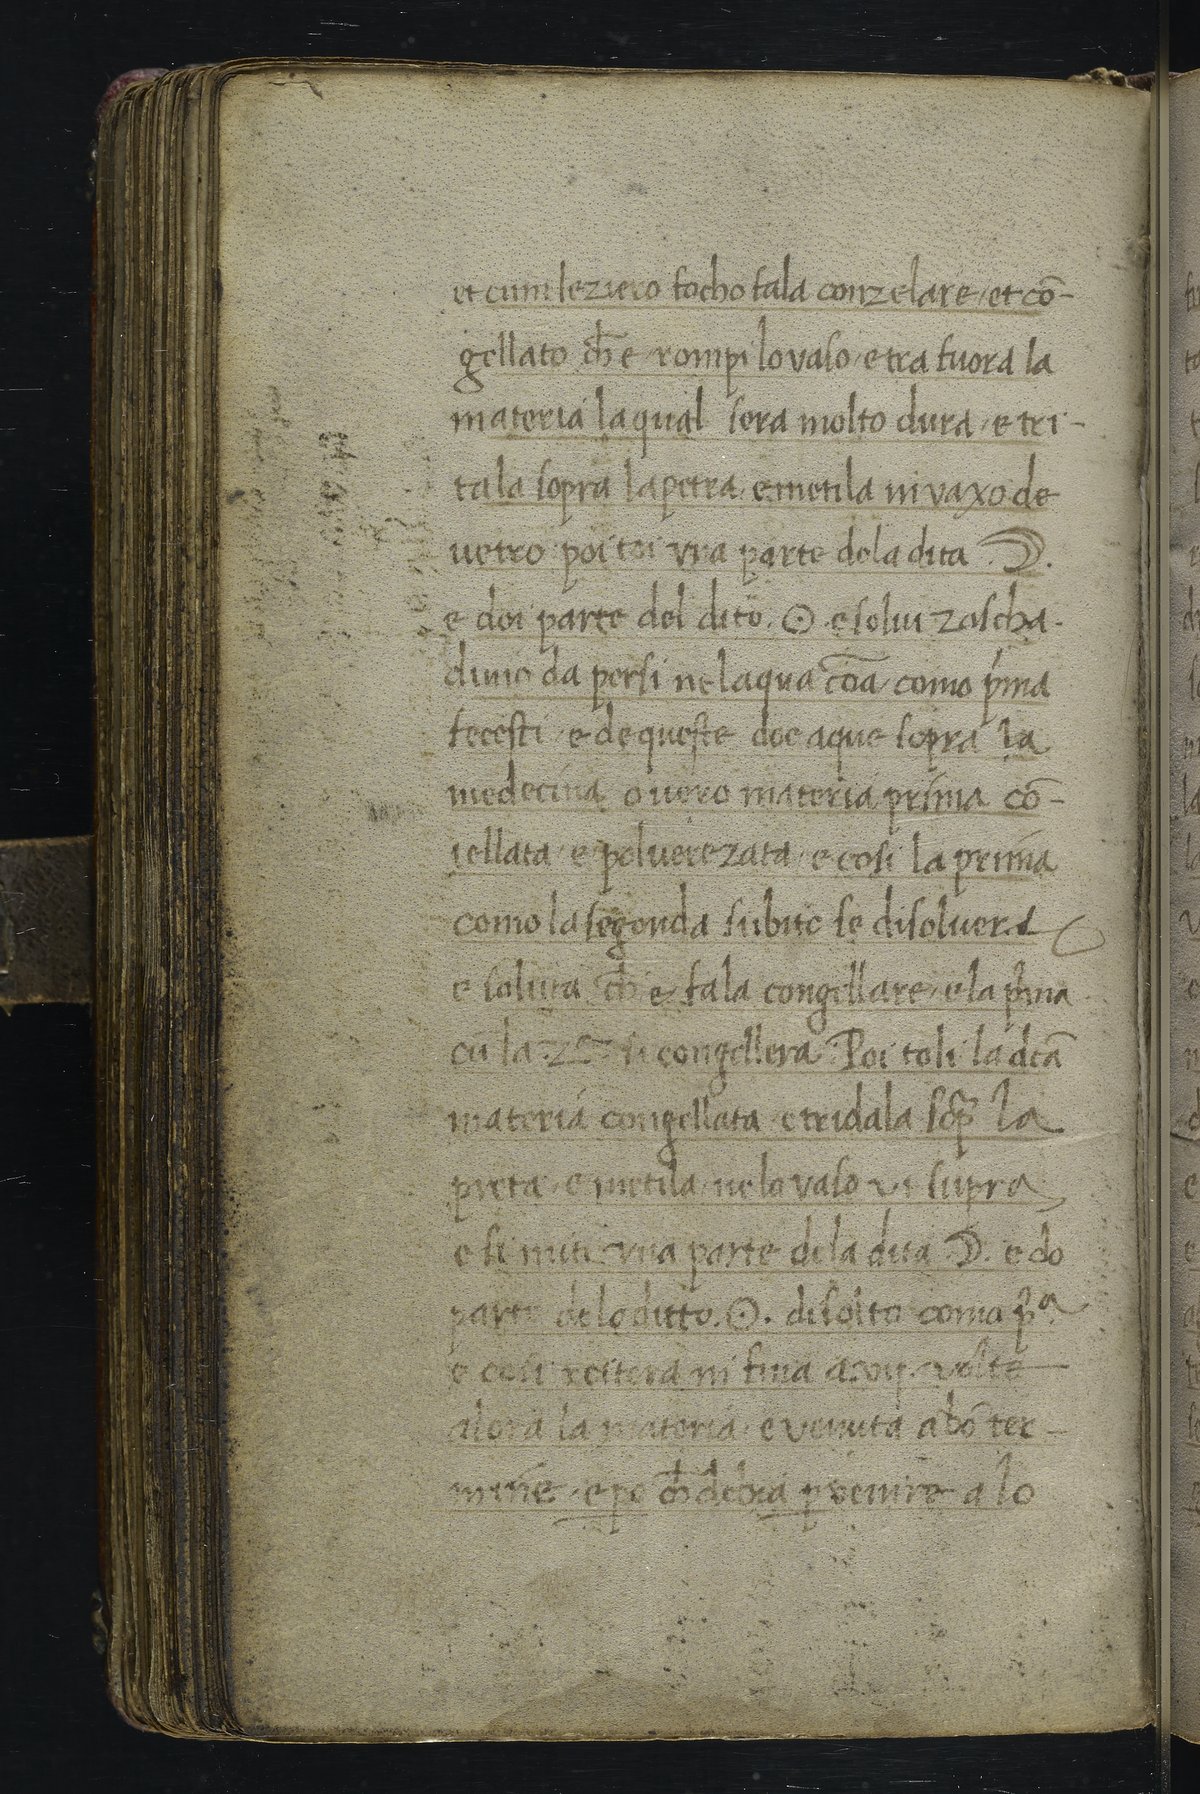 et cum leziero focho fala conzelare, et cō-
gellato ch̄ e, rompi lo vaso, e tra fuora la
materia la qual sera molto dura, e tri-
tala sopra la petra, e metila in vaxo de
vetro poi toi vna parte dela dita ☽.
e doi parte del dito. ☉. e solui zascha-
duno da per si ne laqua cōa, como p'ma
fecesti, e de queste doe aque sopra la
medecina, o uero materia prima cō-
iellata, e poluerezata, e cosi la prima
como la segonda subito se disoluera
e soluta ch̄ e, fala congellare, e la p'ma
cū la 2ᵃ si congellera. Poi toli la dcā
materia congellata, e tridala sop̄ la
preta, e metila, ne lo vaso vt supra,
e si miti vna parte di la dita ☽. e do
parte delo ditto. ☉. disolto como p'ᵃ
e cosi reitera in fina a. vij. volte
alora la materia, e venuta a bō ter-
mine, e po ch̄ debia peruenire a lo